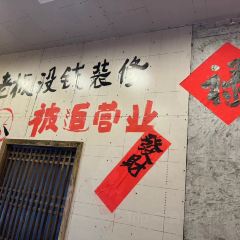 老板没钱装修
被迫营业
發財
福